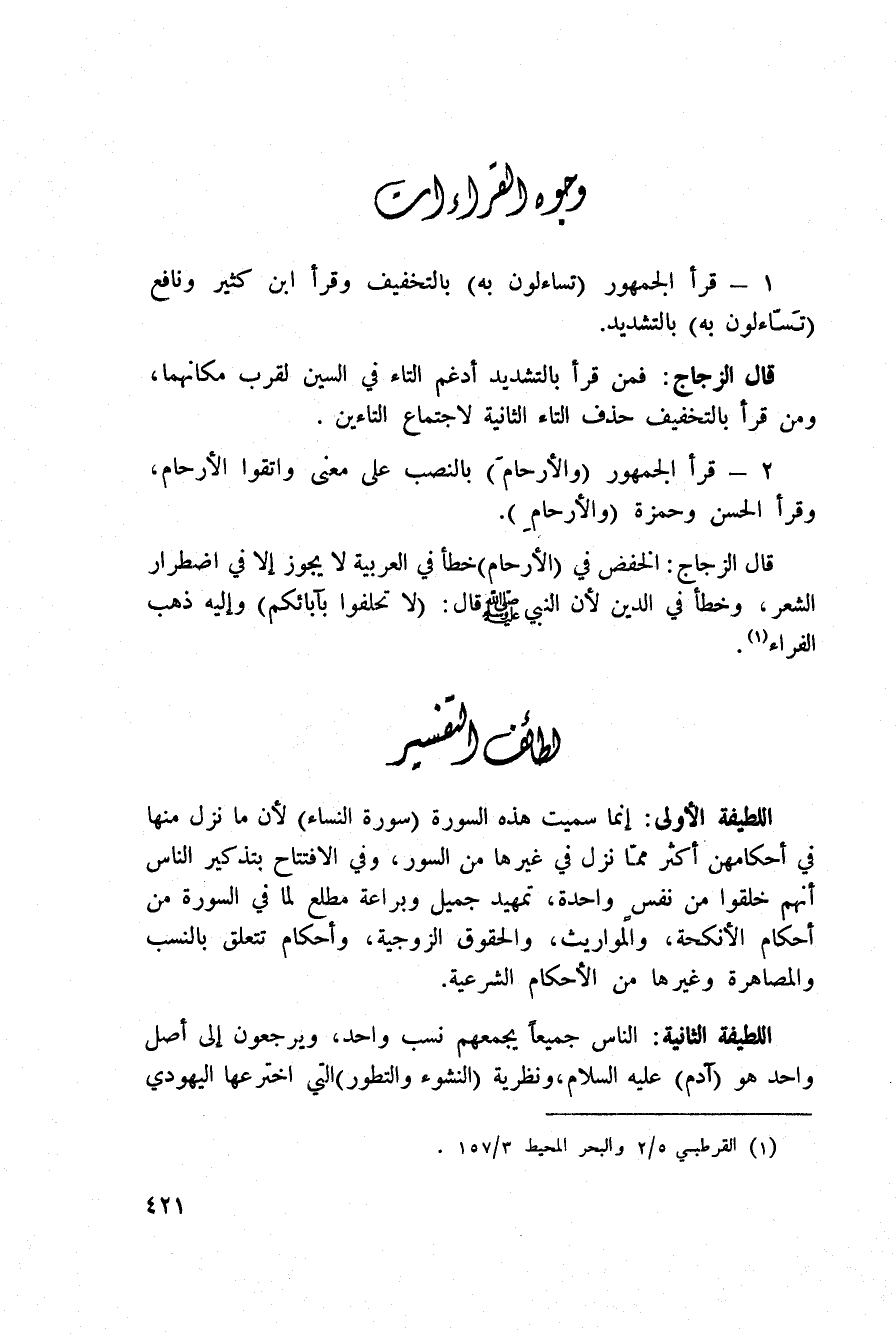 وجوه القراءات
١ – قرأ الجمهور (تساءلون به) بالتخفيف وقرأ ابن كثير ونافع
(تَسَّاءلون به) بالتشديد.
قال الزجاج: فمن قرأ بالتشديد أدغم التاء في السين لقرب مكانهما،
ومن قرأ بالتخفيف حذف التاء الثانية لاجتماع التاءين .
٢ – قرأ الجمهور (والأرحامَ) بالنصب على معنى واتقوا الأرحام،
وقرأ الحسن وحمزة (والأرحامِ).
قال الزجاج: الخفض في (الأرحام)خطأ في العربية لا يجوز إلا في اضطرار
الشعر، وخطأ في الدين لأن النبي ﷺ قال: (لا تحلفوا بآبائكم) وإليه ذهب
الفراء(١).
لطائف التفسير
اللطيفة الأولى: إنما سميت هذه السورة (سورة النساء) لأن ما نزل منها
في أحكامهن أكثر ممّا نزل في غيرها من السور، وفي الافتتاح بتذكير الناس
أنهم خلقوا من نفسٍ واحدة، تمهيد جميل وبراعة مطلع لما في السورة من
أحكام الأنكحة، والمواريث، والحقوق الزوجية، وأحكام تتعلق بالنسب
والمصاهرة وغيرها من الأحكام الشرعية.
اللطيفة الثانية: الناس جميعاً يجمعهم نسب واحد، ويرجعون إلى أصل
واحد هو (آدم) عليه السلام،ونظرية (النشوء والتطور)التي اخترعها اليهودي
(١) القرطبي ٢/٥ والبحر المحيط ١٥٧/٣ .
٤٢١